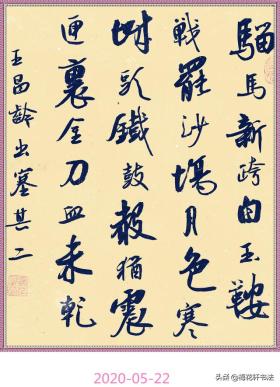 騮馬新跨白玉鞍
戰罷沙場月色寒
城头鐵鼓聲猶震
匣裏金刀血未乾
王昌齡出塞其二
2020-05-22
头条 @梅花轩书法